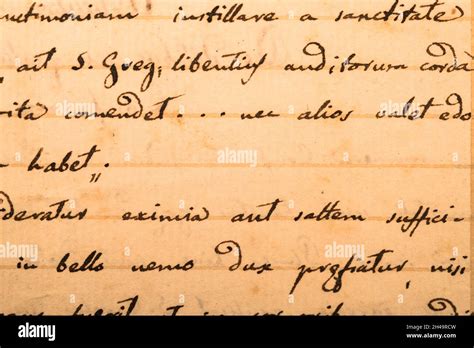 testimoniam instillare a sanctitate
, ait S. Greg; libentius auditorum corda
vita comendet... nec alios valet edo
habet.
deratur eximia aut saltem suffici-
in bello nemo dux prefiatur, nisi
alamy
Image ID: 2H49RCW
www.alamy.com